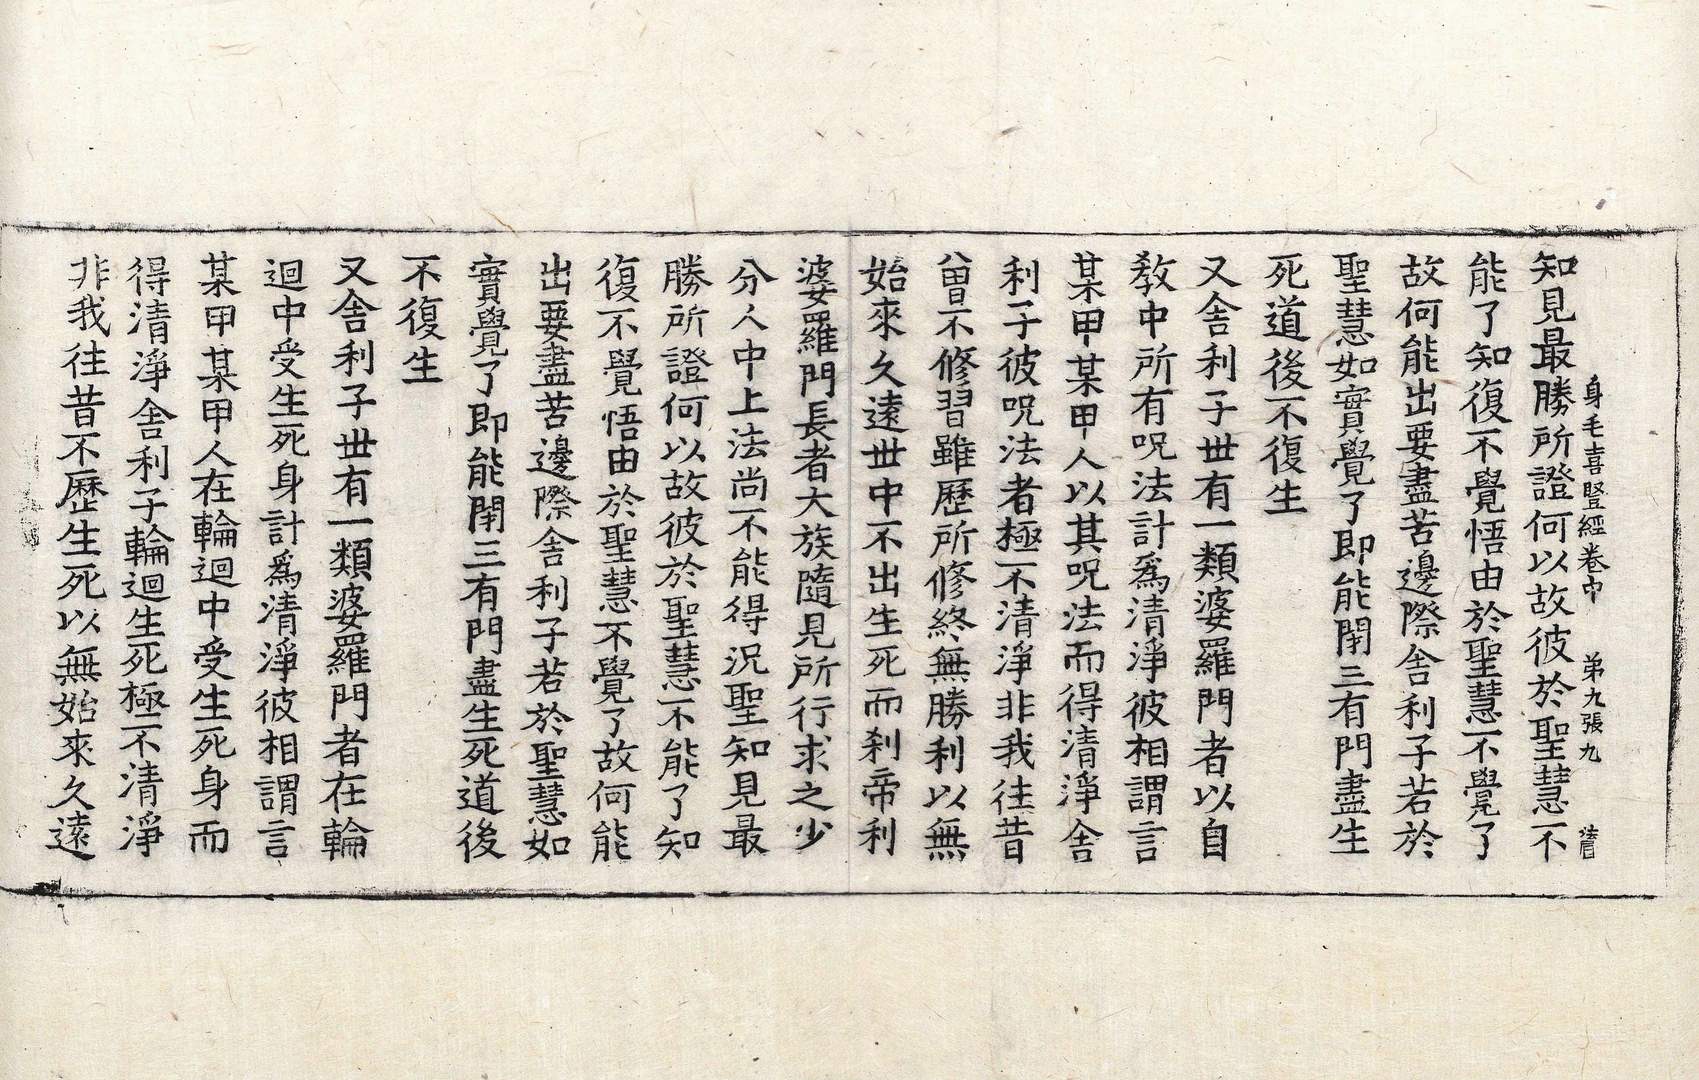 身毛喜豎經卷中　第九張　九
知見最勝所證何以故彼於聖慧不
能了知復不覺悟由於聖慧不覺了
故何能出要盡苦邊際舍利子若於
聖慧如實覺了即能閉三有門盡生
死道後不復生
又舍利子世有一類婆羅門者以自
教中所有呪法計爲清淨彼相謂言
某甲某甲人以其呪法而得清淨舍
利子彼呪法者極不清淨非我往昔
曾不修習雖歷所修終無勝利以無
始來久遠世中不出生死而刹帝利
婆羅門長者大族隨見所行求之少
分人中上法尚不能得況聖知見最
勝所證何以故彼於聖慧不能了知
復不覺悟由於聖慧不覺了故何能
出要盡苦邊際舍利子若於聖慧如
實覺了即能閉三有門盡生死道後
不復生
又舍利子世有一類婆羅門者在輪
迴中受生死身計爲清淨彼相謂言
某甲某甲人在輪迴中受生死身而
得清淨舍利子輪迴生死極不清淨
非我往昔不歷生死以無始來久遠